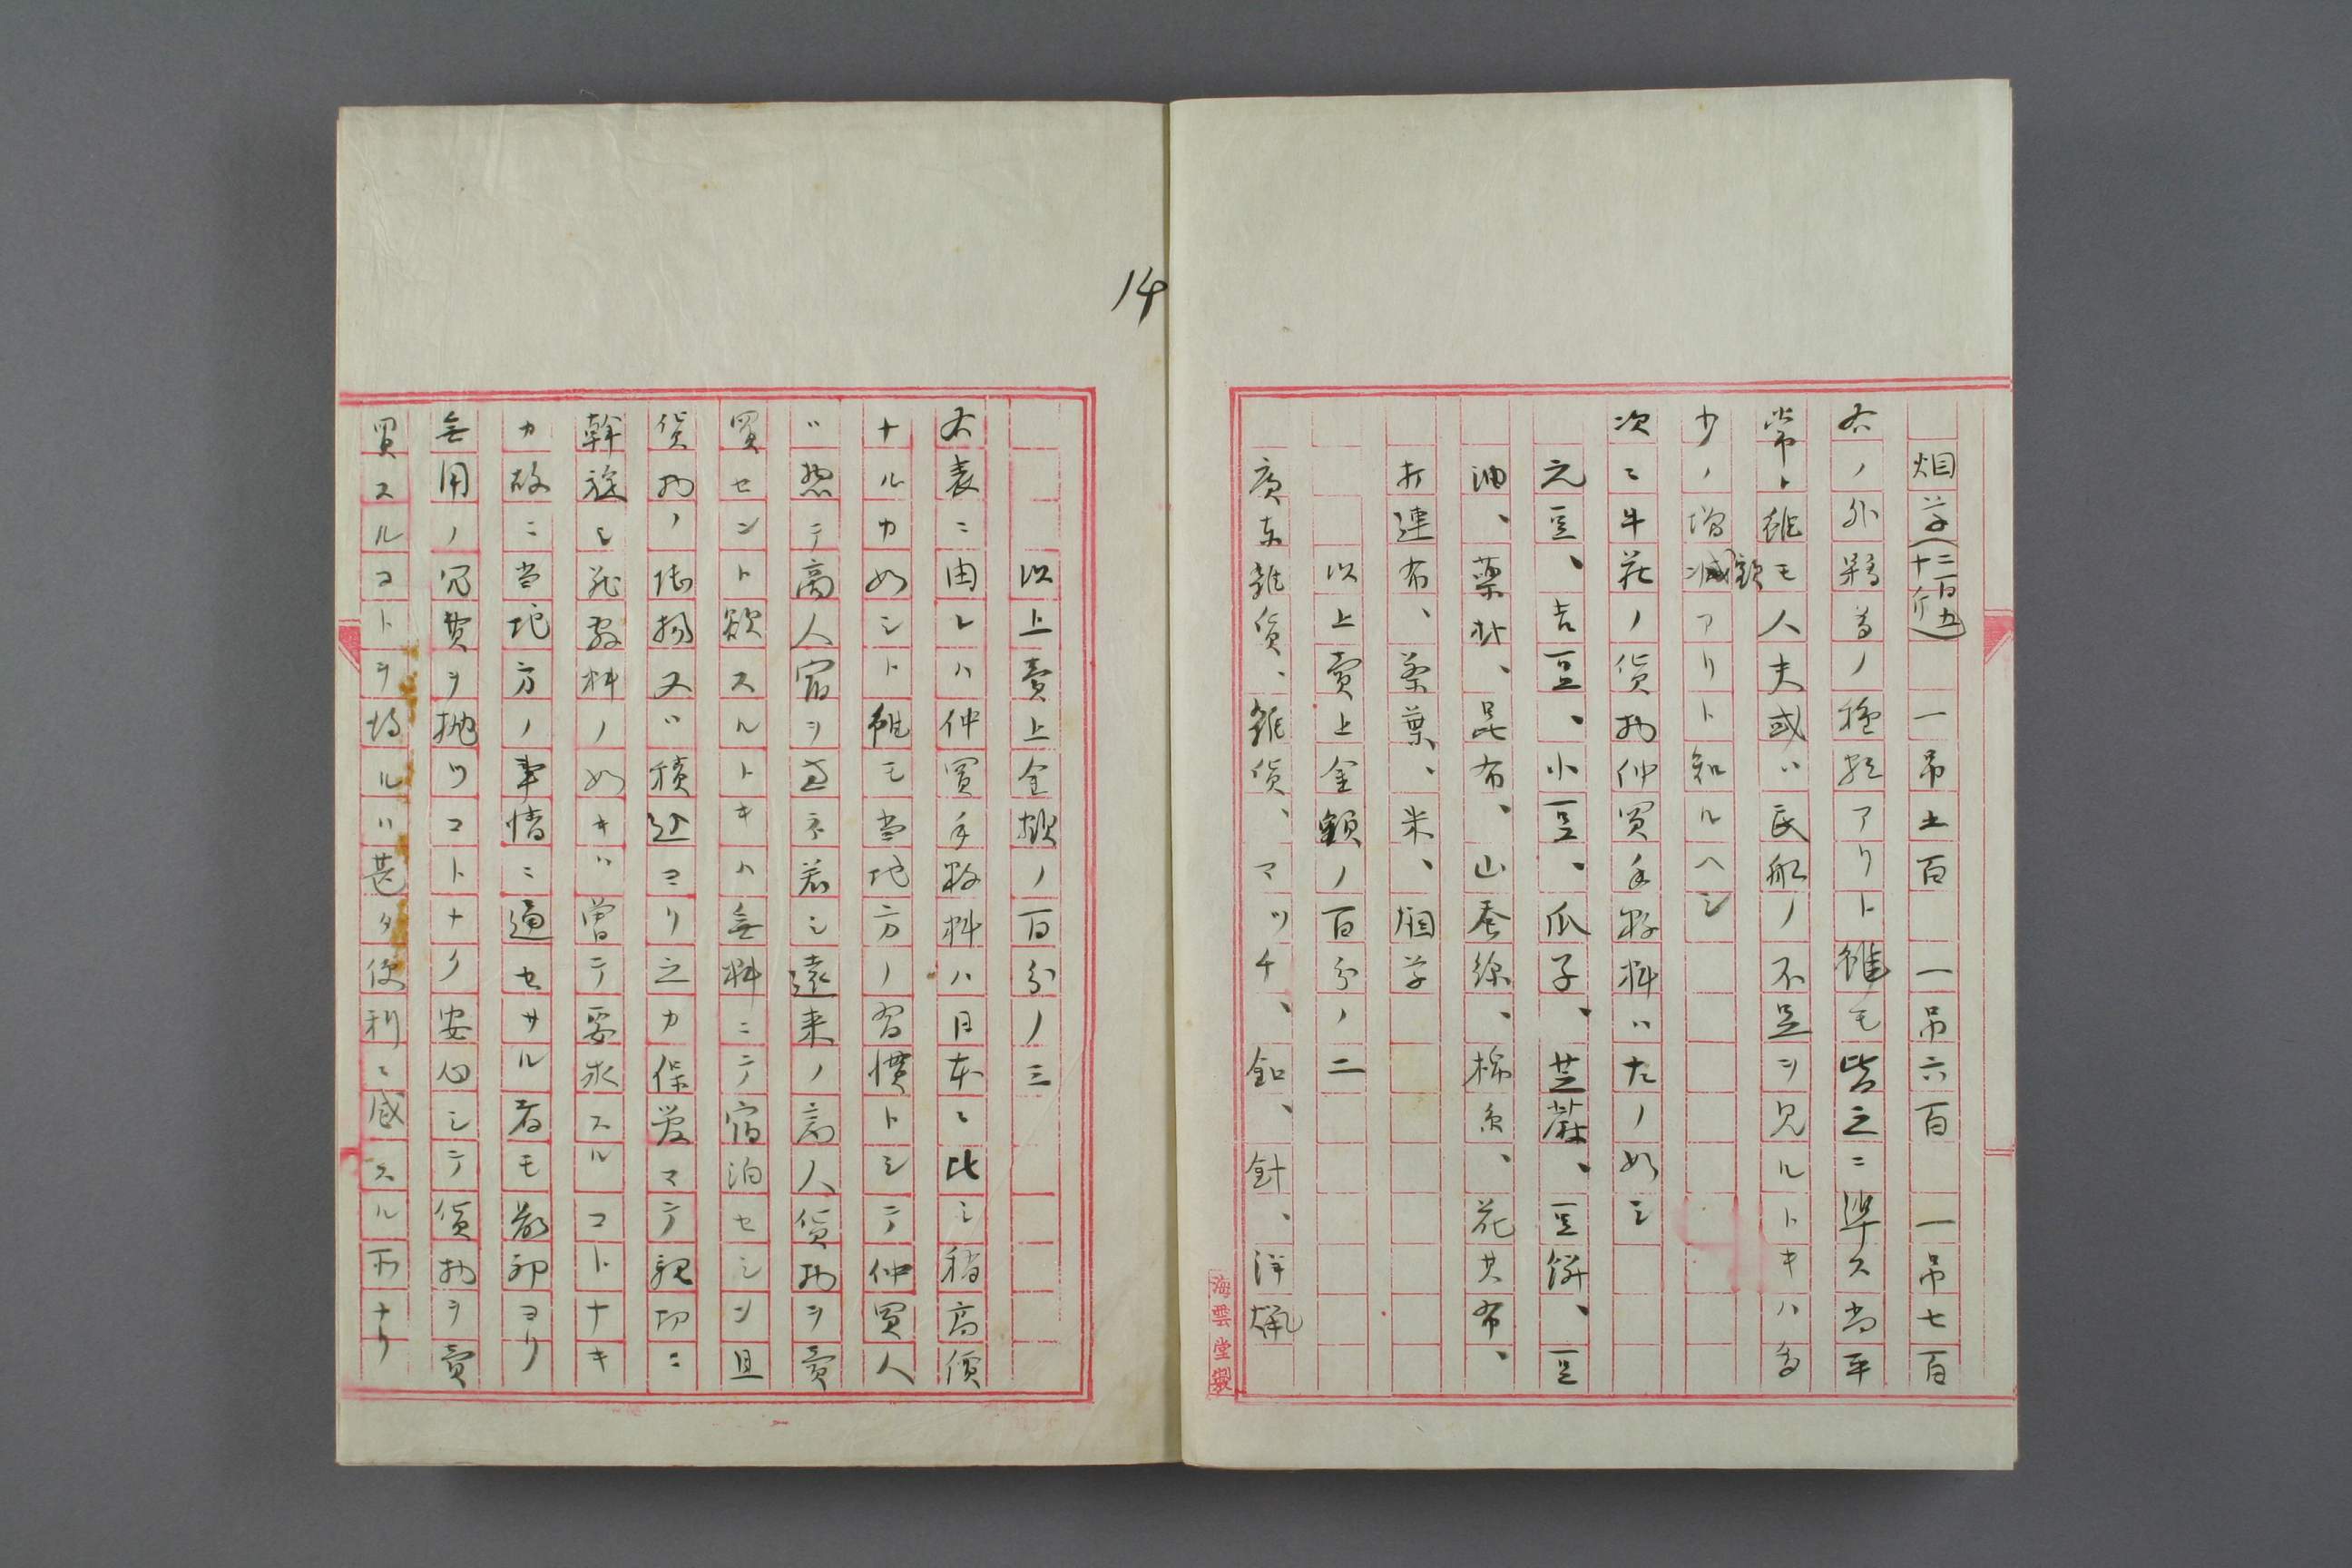 烟草(二百五十斤迠) 一吊五百 一吊六百 一吊七百
右ノ外数多ノ種類アリト雖モ皆之ニ準ス尚平
常ト雖モ人夫或ハ民船ノ不足ヲ見ルトキハ多
少ノ増減額アリト知ルヘシ
次ニ牛莊ノ貨物仲買手数料ハ左ノ如シ
元豆、吉豆、小豆、瓜子、芝蔴、豆餅、豆
油、藥材、昆布、山蚕絲、棉糸、花共布、
打連布、茶葉、米、烟草
以上賣上金額ノ百分ノ二
廣東雜貨、雜貨、マッチ、釦、針、洋燈
海雲堂製
14
以上賣上金額ノ百分ノ三
右表ニ由レハ仲買手数料ハ日本ニ比シ稍高價
ナルカ如シト雖モ当地方ノ習慣トシテ仲買人
ハ概テ商人宿ヲ兼ネ若シ遠来ノ商人貨物ヲ賣
買セント欲スルトキハ無料ニテ宿泊セシメ且
貨物ノ陸揚又ハ積込ヨリ之カ保管マテ親切ニ
斡旋シ花数料ノ如キハ曽テ要求スルコトナキ
カ故ニ当地方ノ事情ニ通セサル者モ最初ヨリ
無用ノ冗費ヲ抛ツコトナク安心シテ貨物ヲ賣
買スルコトヲ得ルハ甚タ便利ニ感スル所ナリ